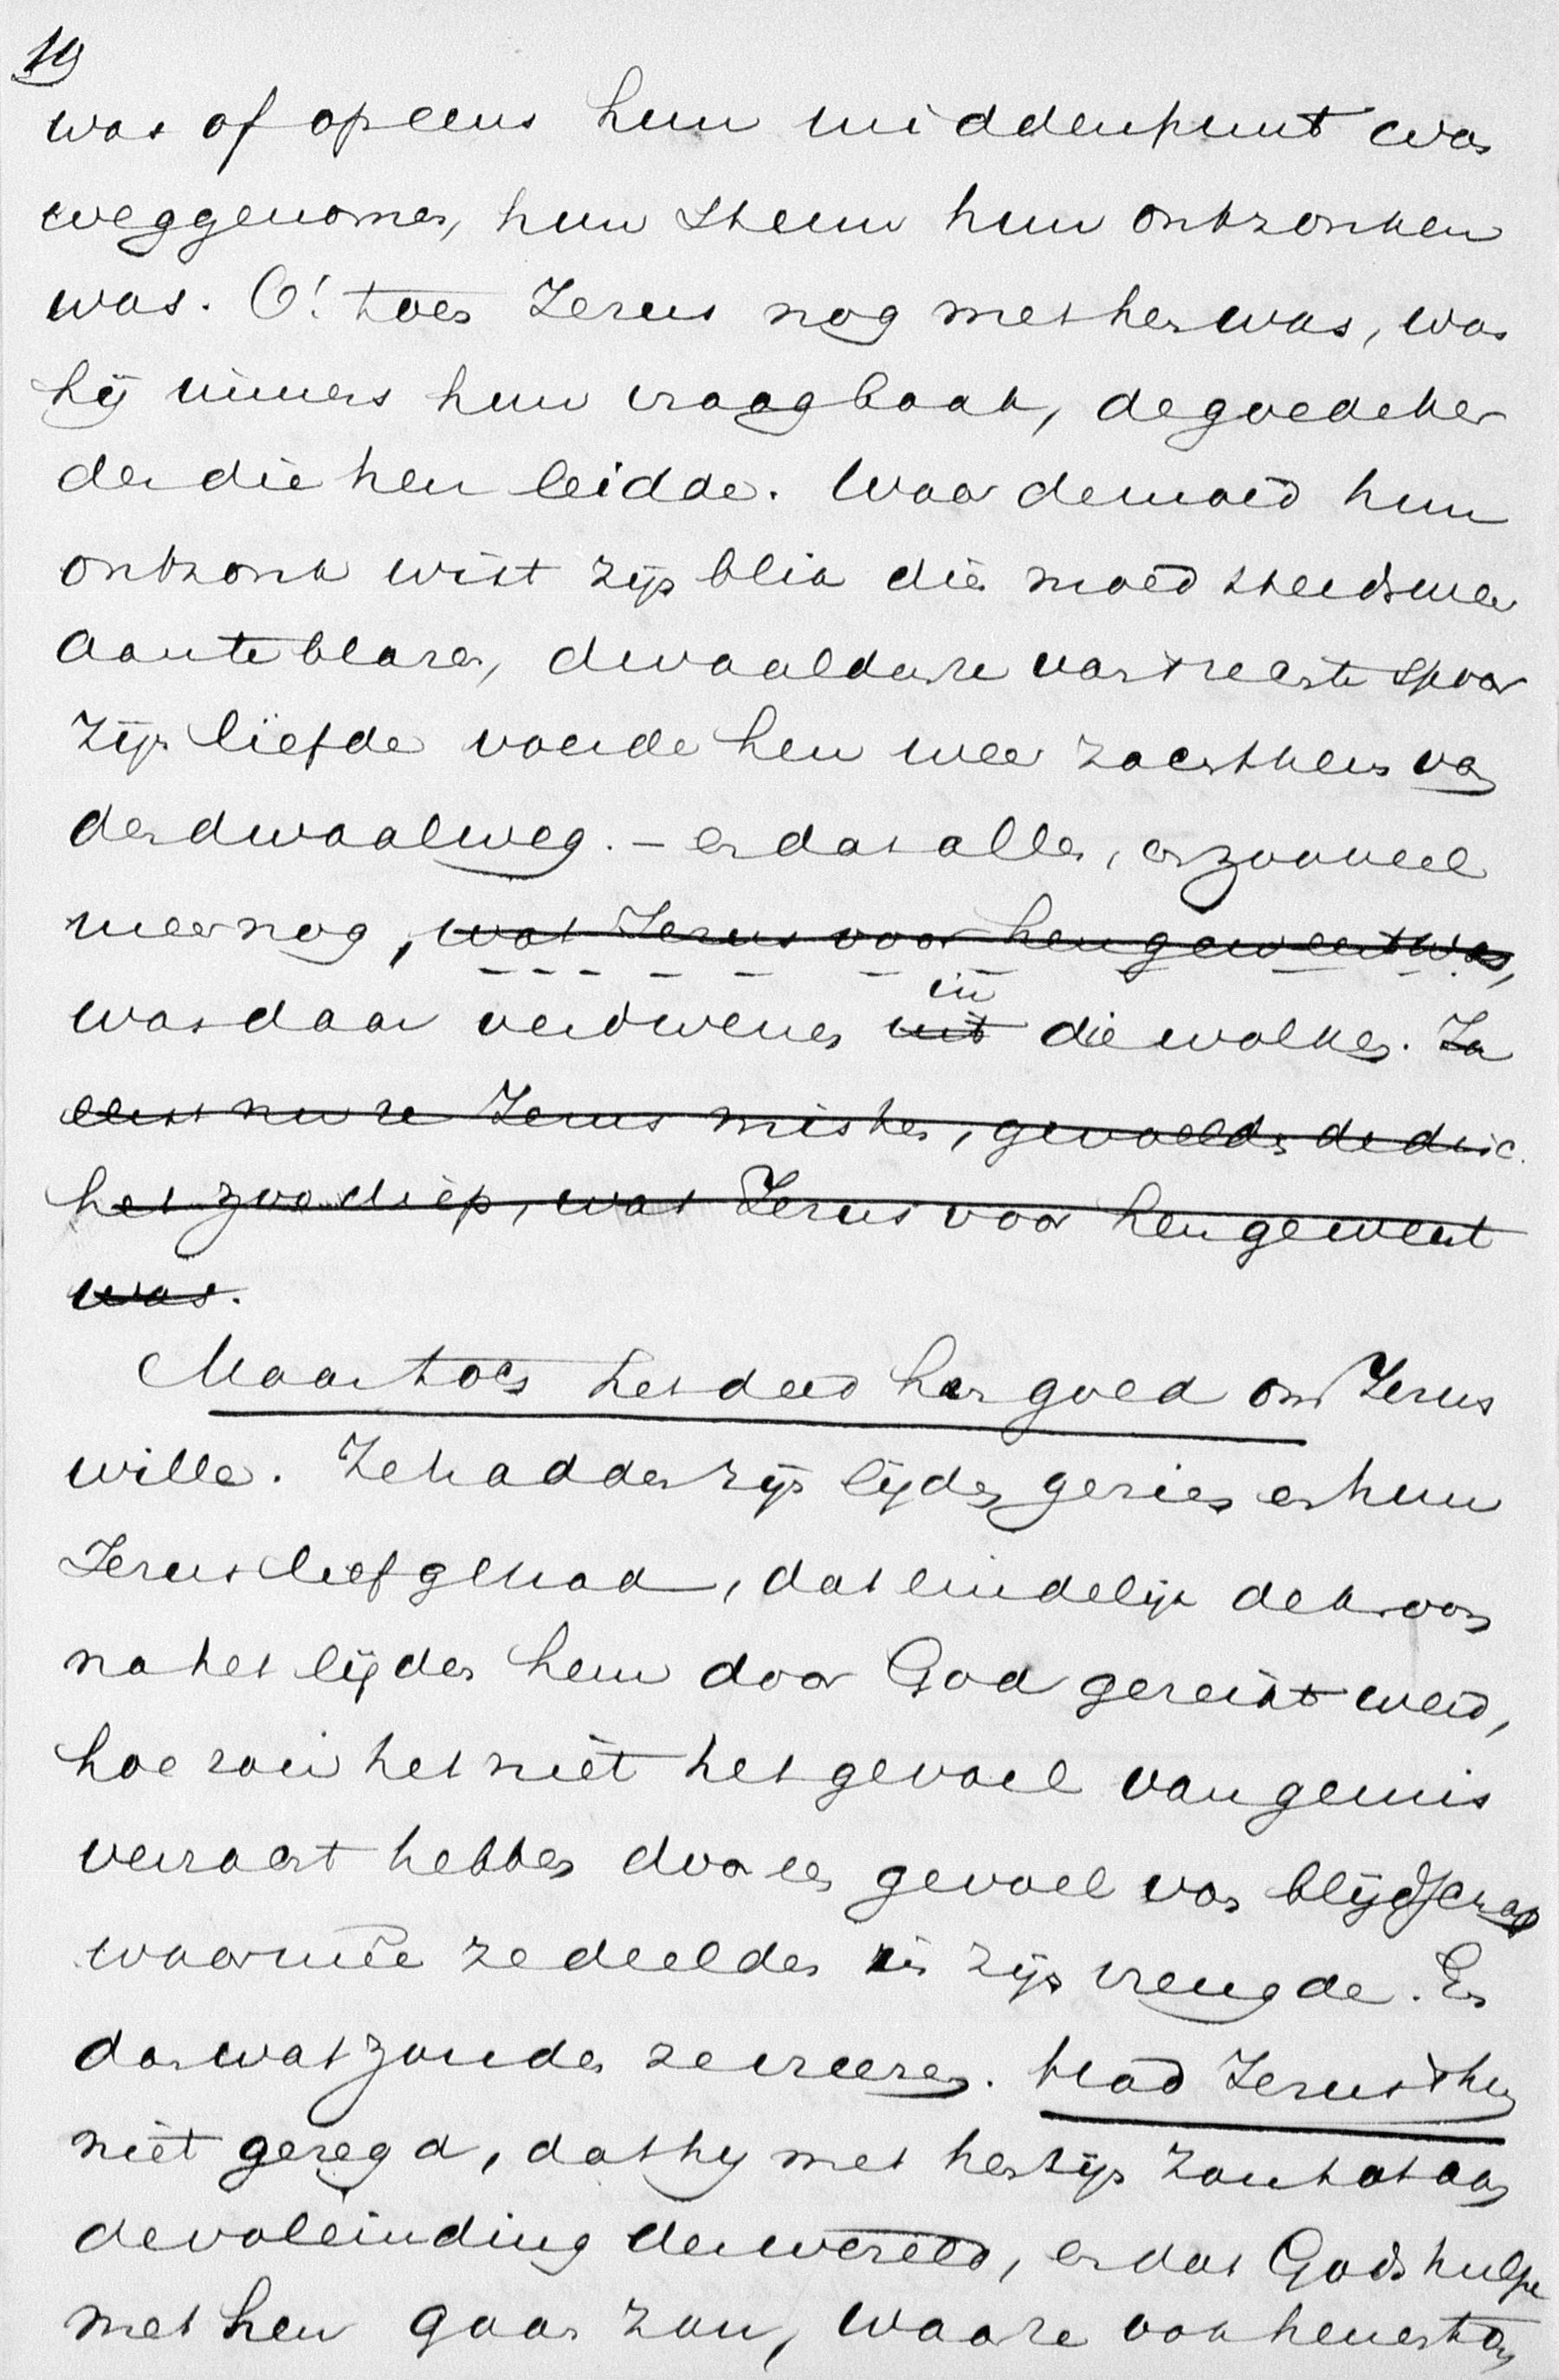 19
was of opeens hun middenpunt was
weggenomen, hun steun hun ontzonken
was. O! toen Jezus nog met hen was, was
hij immers hun vraagbaak, de goede her
der die hen leidde. Waar de moed hun
ontzonk wist zijn blik die moed steeds weer
aan te blazen, dwaalden ze van 't rechte spoor
zijn liefde voerde hen weer zachtkens van
den dwaalweg. – en dat alles, en zooveel
meer nog, wat Jezus voor hen geweest was,
in
was daar verdwenen uit die wolken. Ja
eerst nu ze Jezus misten, gevoelden de disc.
het zoo diep, wat Jezus voor hen geweest
was.
Maar toch het deed hen goed om Jezus
wille. Ze hadden zijn lijden gezien en hun
Jezus liefgehad, dat eindelijk de kroon
na het lijden hem door God gereikt werd,
hoe zou het niet het gevoel van gemis
verzacht hebben door een gevoel van blijdschap
waarmee ze deelden in zijn vreugde. En
dan wat zouden ze vreezen. Had Jezus 't hun
niet gezegd, dat hij met hen zijn zou tot aan
de voleinding der wereld, en dat Gods hulpe
met hen gaan zou, waar ze ook heen